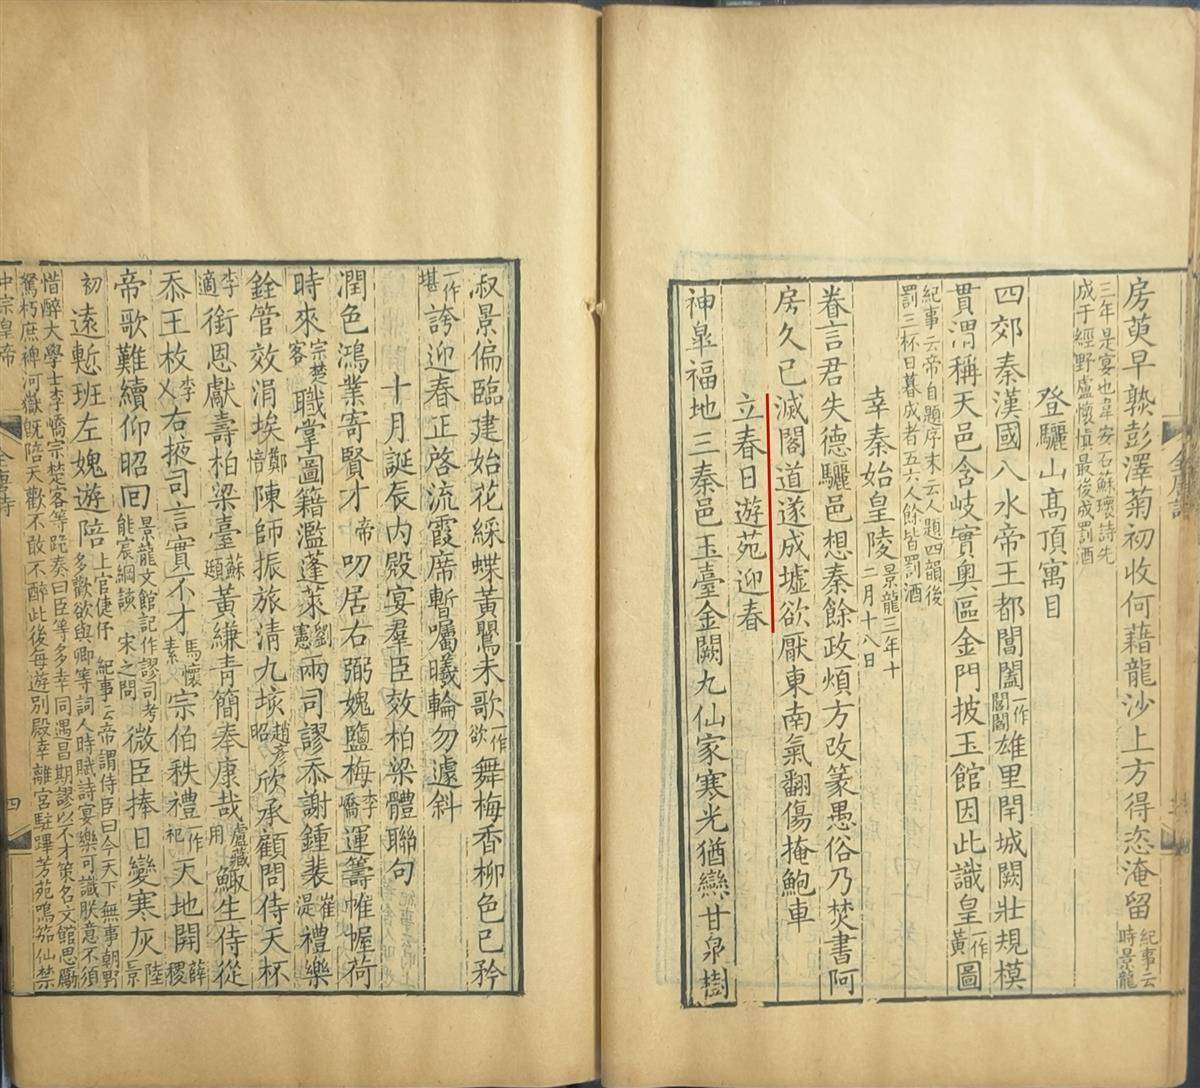 房萸早熟彭澤菊初收何藉龍沙上方得恣淹留紀事云時景龍
三年是宴也韋安石蘇瓌詩先成于經野盧懷愼最後成罰酒
登驪山高頂寓目
四郊秦漢國八水帝王都閶闔一作閭閻雄里閈城闕壯規模
貫渭稱天邑含岐實奧區金門披玉館因此識皇一作黃圖
紀事云帝自題序末云人題四韻後罰三杯日暮成者五六人餘皆罰酒
幸秦始皇陵景龍三年十二月十八日
眷言君失德驪邑想秦餘政煩方改篆愚俗乃焚書阿
房久已滅閣道遂成墟欲厭東南氣翻傷掩鮑車
立春日遊苑迎春
神臯福地三秦邑玉臺金闕九仙家寒光猶戀甘泉樹
淑景偏臨建始花綵蝶黃鸎未歌一作欲舞梅香柳色已矜
一作堪誇迎春正啓流霞席暫囑曦輪勿遽斜
十月誕辰內殿宴羣臣效柏梁體聯句
潤色鴻業寄賢才帝叨居右弼媿鹽梅李嶠運籌帷幄荷
時來宗楚客職掌圖籍濫蓬萊劉憲兩司謬忝謝鍾裴崔湜禮樂
銓管效涓埃鄭愔陳師振旅清九垓趙彥昭欣承顧問侍天杯
李適銜恩獻壽柏梁臺蘇頲黃縑青簡奉康哉盧藏用鯫生侍從
忝王枚李乂右掖司言實不才馬懷素宗伯秩禮一作祀天地開薛稷
帝歌難續仰昭回景龍文館記作謬司考能宸綱談 宋之問微臣捧日變寒灰陸景
初遠慙班左媿遊陪上官倢伃 紀事云帝謂侍臣曰今天下無事朝野多歡欲與卿等詞人時賦詩宴樂可識朕意不須
惜醉大學士李嶠宗楚客等跪奏曰臣等多幸同遇昌期謬以不才策名文館思勵駑朽庶裨河嶽旣陪天歡不敢不醉此後每遊別殿幸離宮駐蹕芳苑鳴笳仙禁
中宗皇帝
全唐詩
四